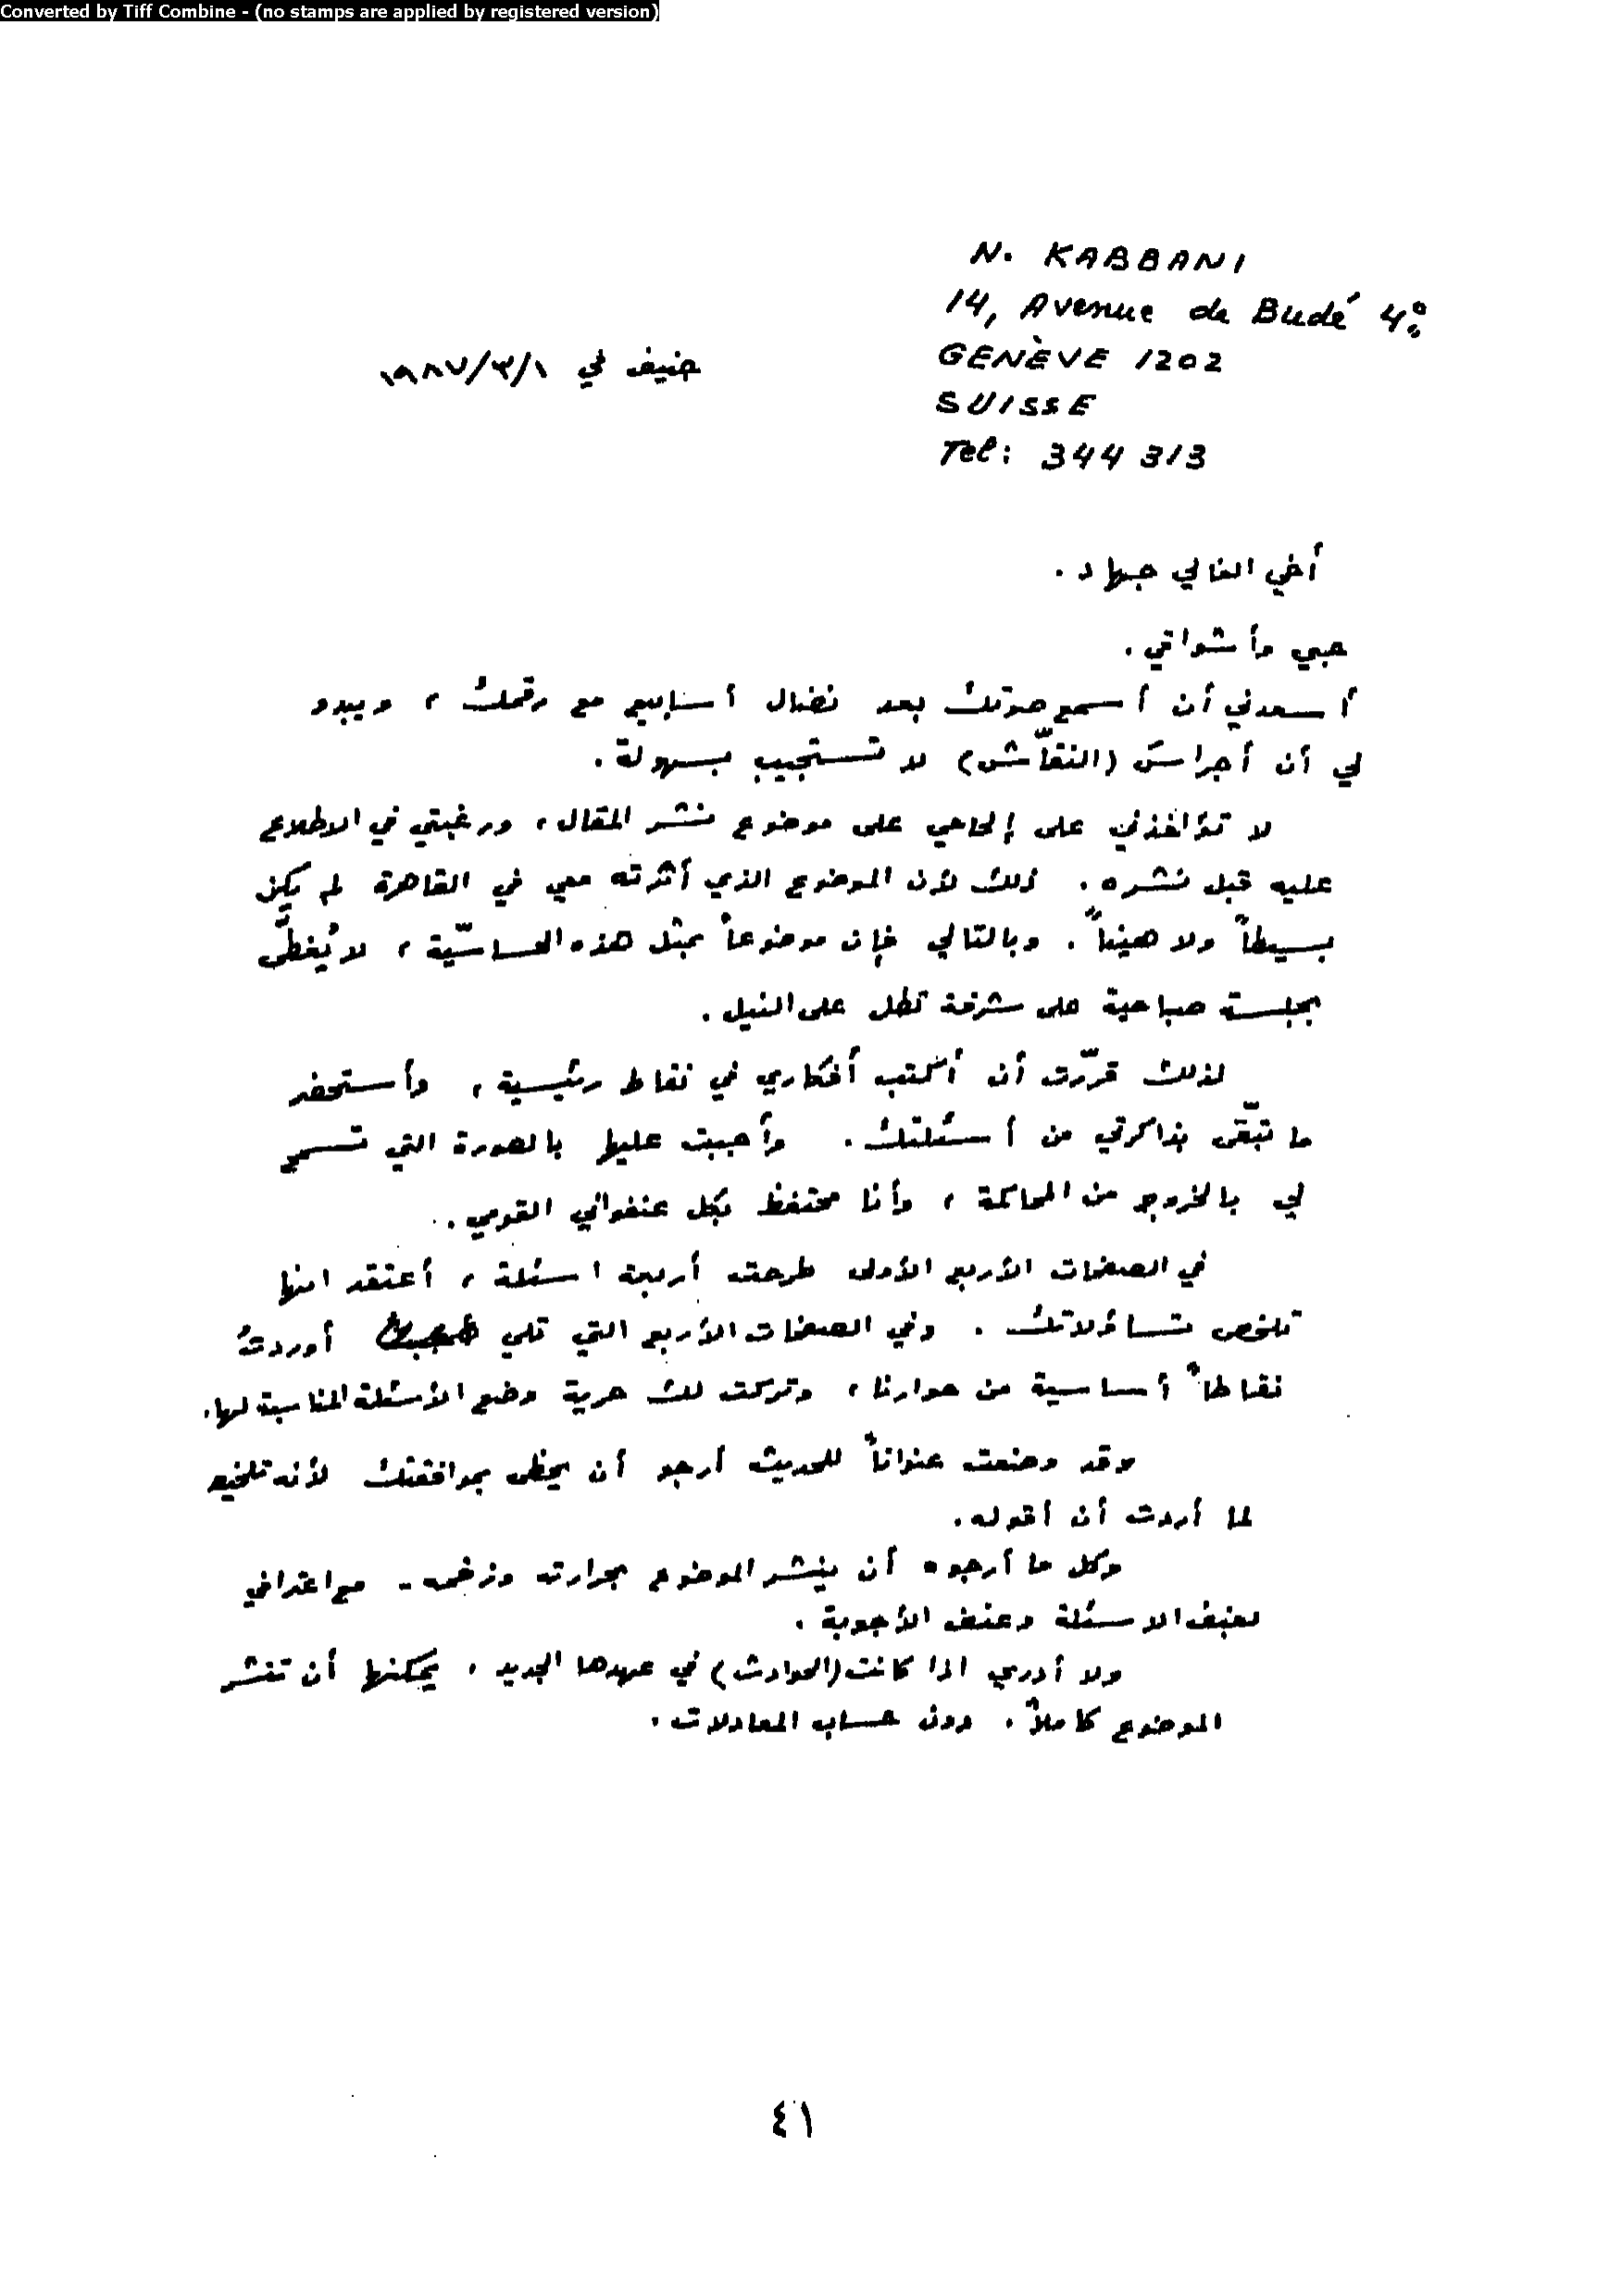 Converted by Tiff Combine - (no stamps are applied by registered version)
N. KABBANI
14, Avenue de Budé 4º
GENÈVE 1202
SUISSE
Tel: 344 313
جنيف في ١٩٨٧/٣/١
أخي الغالي جهاد.
حبي وأشواقي.
أسعدني أن أسمع صوتك بعد نضال أسابيع مع رقمك، ويبدو
لي أن أجراسَ (النقّاش) لا تستجيب بسهولة.
لا تؤاخذني على إلحاحي على موضوع نشر المقال، ورغبتي في الاطلاع
عليه قبل نشره. ذلك لأن الموضوع الذي أثرته معي في القاهرة لم يكن
بسيطاً ولا هيناً. وبالتالي فإن موضوعاً بمثل هذه الحساسيّة، لا يُغطَّى
بجلسة صباحية على شرفة تطل على النيل.
لذلك قرّرت أن أكتب أفكاري في نقاط رئيسية، وأستحضر
ما تبّقى بذاكرتي من أسئلتك. وأجبت عليها بالصورة التي تسمح
لي بالخروج من المحاكمة، وأنا محتفظ بكل عنفواني القومي.
في الصفحات الأربع الأولى طرحت أربعة اسئلة، أعتقد انها
تلخص تساؤلاتك. وفي الصفحات الأربع التي تلي أوردتُ
نقاطاً أساسية من حوارنا، وتركت لك حرية وضع الأسئلة المناسبة لها.
وقد وضعت عنواناً للحديث أرجو أن يحظى بموافقتك لأنه تلخيص
لما أردت أن أقوله.
وكل ما أرجوه أن ينشر الموضوع بحرارته وزخمه - مع اعترافي
بعنف الاسئلة وعنف الأجوبة.
ولا أدري اذا كانت (الحوادث) في عهدها الجديد، يمكنها أن تنشر
الموضوع كاملاً، دون حساب المعادلات.
٤١